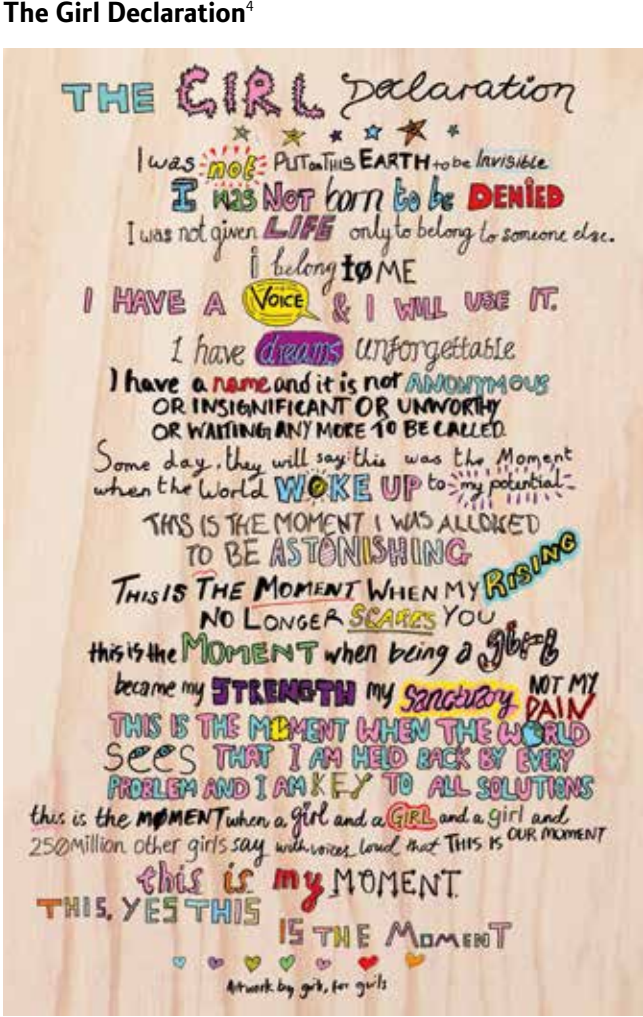 The Girl Declaration⁴
THE GIRL Declaration
I was not PUT on THIS EARTH to be Invisible
I WAS NOT born to be DENIED
I was not given LIFE only to belong to someone else.
i belong tø ME
I HAVE A VOICE & I WILL USE IT.
I have dreams unforgettable
I have a name and it is not ANONYMOUS
OR INSIGNIFICANT OR UNWORTHY
OR WAITING ANY MORE TO BE CALLED.
Some day, they will say: this was the Moment
when the World WOKE UP to my potential
THIS IS THE MOMENT I WAS ALLOWED
TO BE ASTONISHING
THIS IS THE MOMENT WHEN MY RISING
NO LONGER SCARES YOU
this is the MOMENT when being a girl
became my STRENGTH my Sanctuary NOT MY PAIN
THIS IS THE MOMENT WHEN THE WORLD
SEES THAT I AM HELD BACK BY EVERY
PROBLEM AND I AM KEY TO ALL SOLUTIONS
this is the MØMENT when a girl and a GIRL and a girl and
250 Million other girls say with voices loud that THIS IS OUR MOMENT
this is my MOMENT.
THIS, YES THIS
IS THE MOMENT
Artwork by girls, for girls